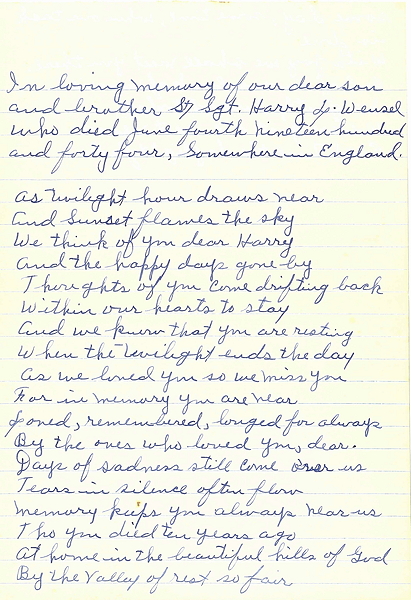 In loving memory of our dear son
and brother St Sgt. Harry L. Wensel
who died June fourth nineteen hundred
and forty four, Somewhere in England.
As twilight hour draws near
And Sunset flames the sky
We think of you dear Harry
And the happy days gone by
Thoughts of you come drifting back
Within our hearts to stay
And we know that you are resting
When the twilight ends the day
As we loved you so we miss you
For in memory you are near
Loved, remembered, longed for always
By the ones who loved you, dear.
Days of sadness still come over us
Tears in silence often flow
Memory keeps you always near us
Tho you died ten years ago
At home in the beautiful hills of God
By the Valley of rest so fair